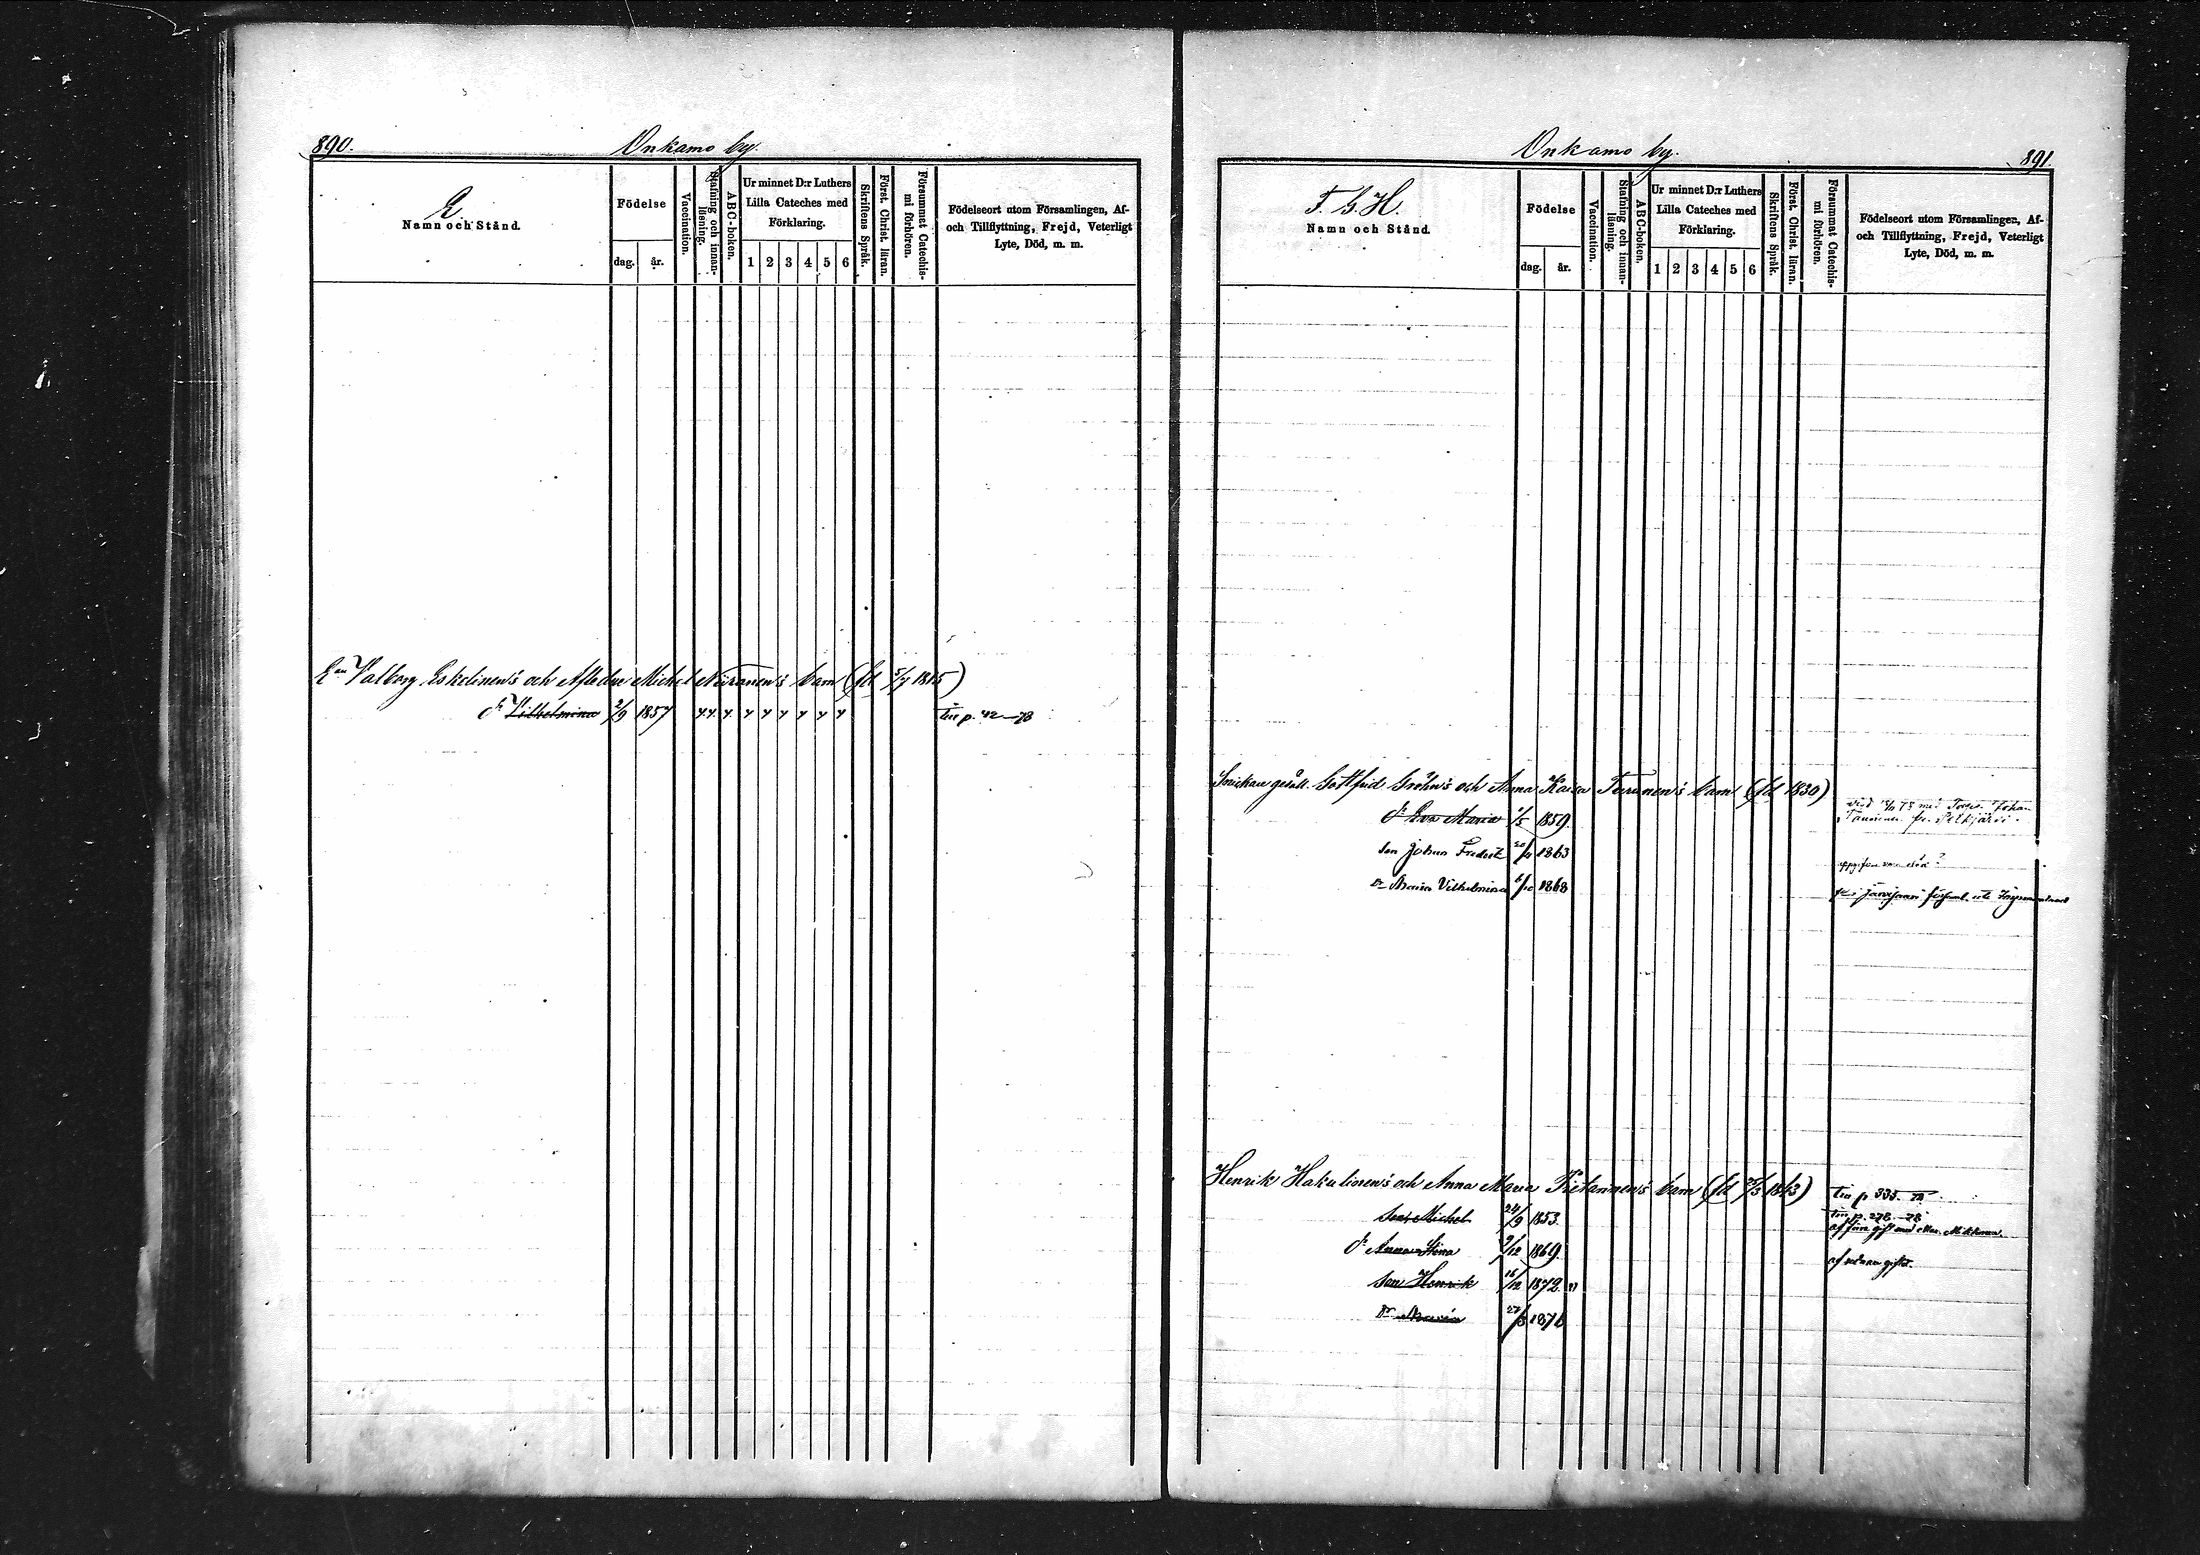 890.
Onkamo by.
E.
Namn och Stånd.
Födelse
dag.
år.
Vaccination.
Stafning och innanläsning.
ABC-boken.
Ur minnet D:r Luthers
Lilla Cateches med
Förklaring.
1 2 3 4 5 6
Skriftens Språk.
Först. Christ. läran.
Försummat Catechismi förhören.
Födelseort utom Församlingen, Af-
och Tillflyttning, Frejd, Veterligt
Lyte, Död, m. m.
Valborg Eskelinen's och Afledne Michel barn (fd 5/7 1815)
Vilhelmina 2/9 1857
p. 42—78
Onkamo by.
891.
F. G. H.
Namn och Stånd.
Födelse
dag.
år.
Vaccination.
Stafning och innanläsning.
ABC-boken.
Ur minnet D:r Luthers
Lilla Cateches med
Förklaring.
1 2 3 4 5 6
Skriftens Språk.
Först. Christ. läran.
Försummat Catechismi förhören.
Födelseort utom Församlingen, Af-
och Tillflyttning, Frejd, Veterligt
Lyte, Död, m. m.
Snickare gesäll. Gottfrid Gröhn's och Anna Kaisa barn (fd 1830)
Eva Maria 1/5 1859.
Johan
Pelkjärvi
son Johan 20/4 1863
Dr Maria Vilhelmina 1/10 1868
Henrik Hakulinen's och Anna Maria barn (fd 25/3 1843)
p 333.
son Michel 24/9 1853.
p. 278—78
af förra gift med
Anna Stina 9/12 1869.
af sednare giftet.
son Henrik 16/12 1872
Dr Maria 1876